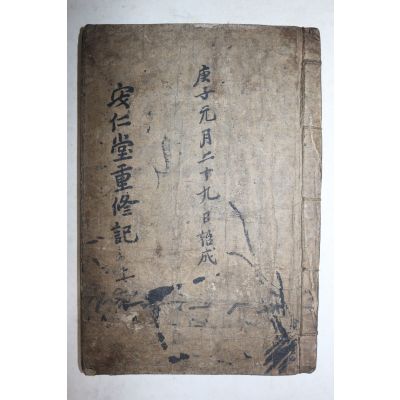 庚子元月二十九日諧成
安仁堂重修記
上